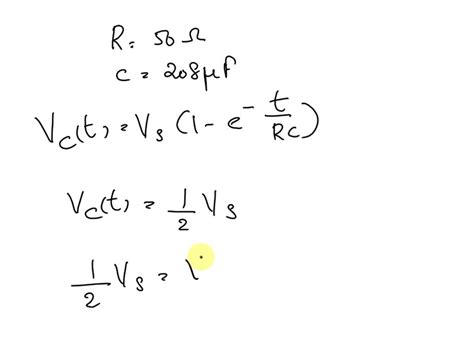 R = 50 Ω
C = 208 μF
Vc(t) = Vs (1 - e^- t/RC)
Vc(t) = 1/2 Vs
1/2 Vs = V